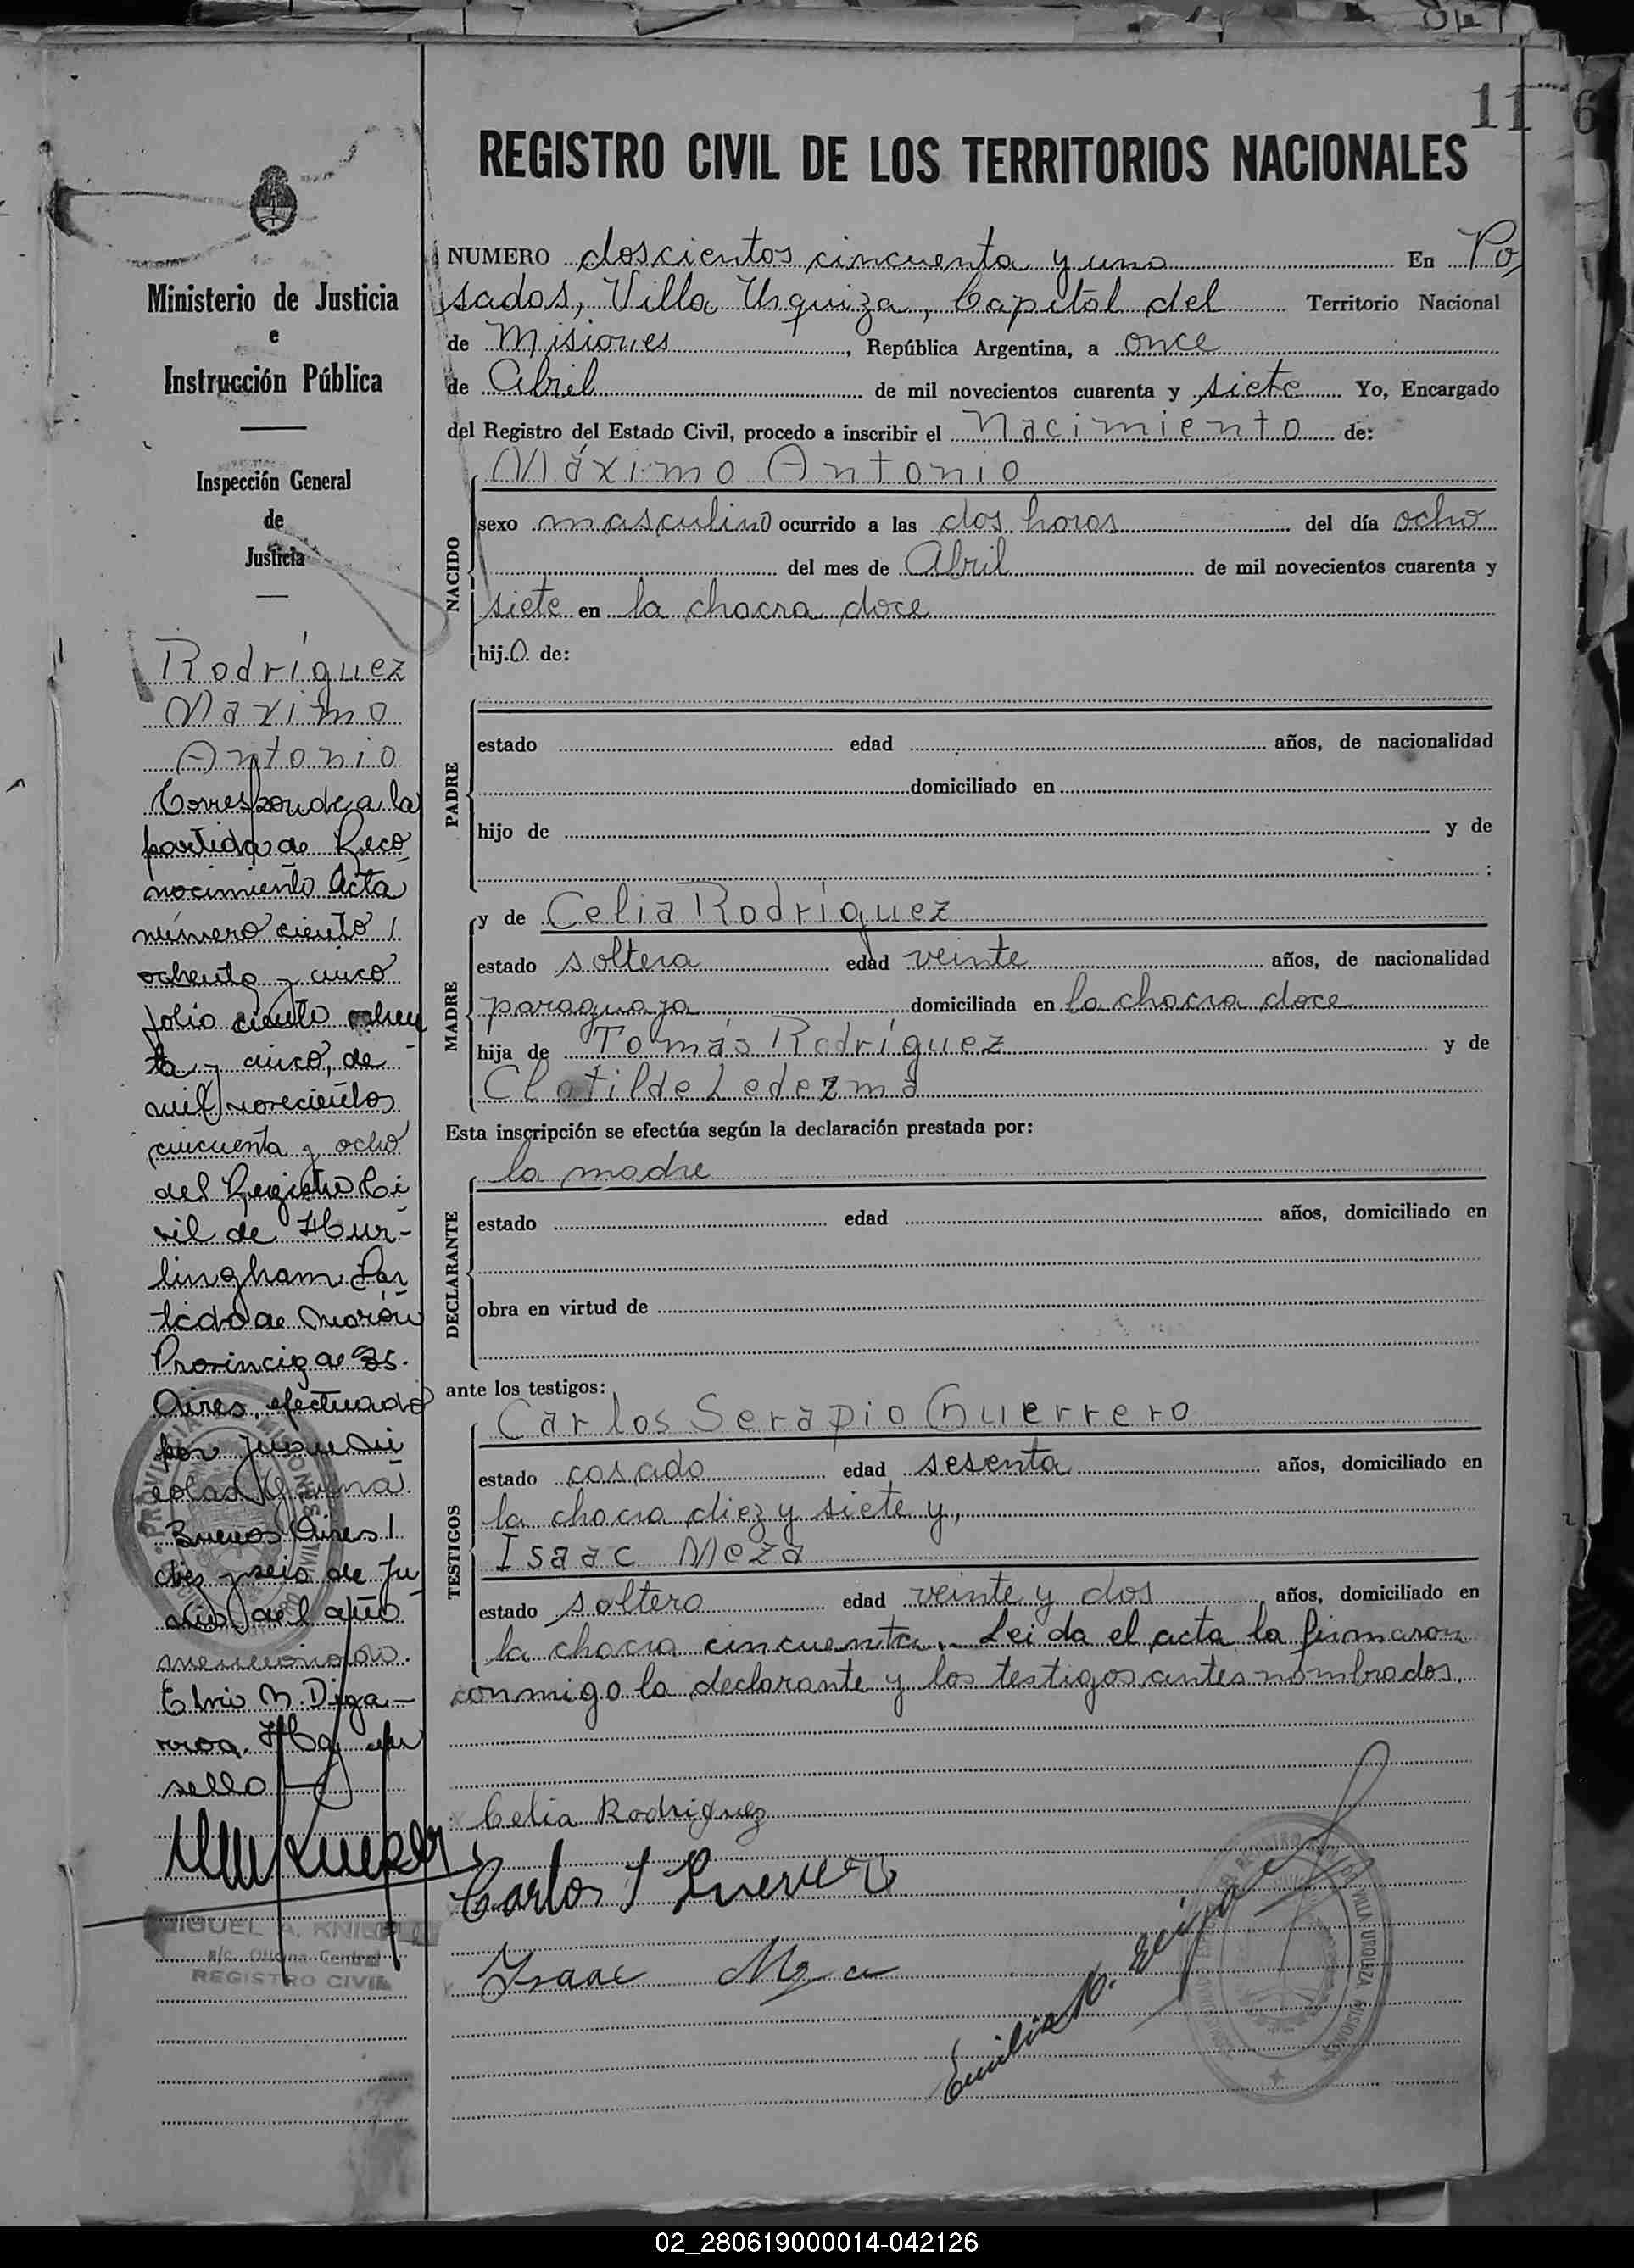 11
REGISTRO CIVIL DE LOS TERRITORIOS NACIONALES
Ministerio de Justicia
e
Instrucción Pública
Inspección General
de
Justicia
Rodríguez
Máximo
Antonio
Corresponde a la
partida de Reco
nocimiento Acta
número ciento
ochenta y cinco
folio ciento ochen
ta y cinco, de
mil novecientos
cincuenta y ocho
del Registro Ci
vil de Hur-
lingham Par
tido de Morón
Provincia de Bs.
Aires, efectuado
por Juan
Buenos Aires
diez y seis de
del año
mencionado.
Elvio M.
Hay un
sello
MIGUEL A.
Oficina Central
REGISTRO CIVIL
NUMERO doscientos cincuenta y uno En Po
sadas, Villa Urquiza, Capital del Territorio Nacional
de Misiones, República Argentina, a once
de Abril de mil novecientos cuarenta y siete Yo, Encargado
del Registro del Estado Civil, procedo a inscribir el Nacimiento de:
NACIDO
Máximo Antonio
sexo masculino ocurrido a las dos horas del día ocho
del mes de Abril de mil novecientos cuarenta y
siete en la chacra doce
hijo de:
PADRE
estado edad años, de nacionalidad
domiciliado en
hijo de y de
;
MADRE
y de Celia Rodríguez
estado soltera edad veinte años, de nacionalidad
paraguaya domiciliada en la chacra doce
hija de Tomás Rodríguez y de
Clotilde Ledezma
Esta inscripción se efectúa según la declaración prestada por:
DECLARANTE
la madre
estado edad años, domiciliado en
obra en virtud de
ante los testigos:
TESTIGOS
Carlos Serapio Guerrero
estado casado edad sesenta años, domiciliado en
la chacra diez y siete y,
Isaac Meza
estado soltero edad veinte y dos años, domiciliado en
la chacra cincuenta. Leida el acta la firmaron
conmigo la declarante y los testigos antes nombrados.
Celia Rodriguez
Carlos S Guerrero
Isaac Meza
Emilia
02_280619000014-042126